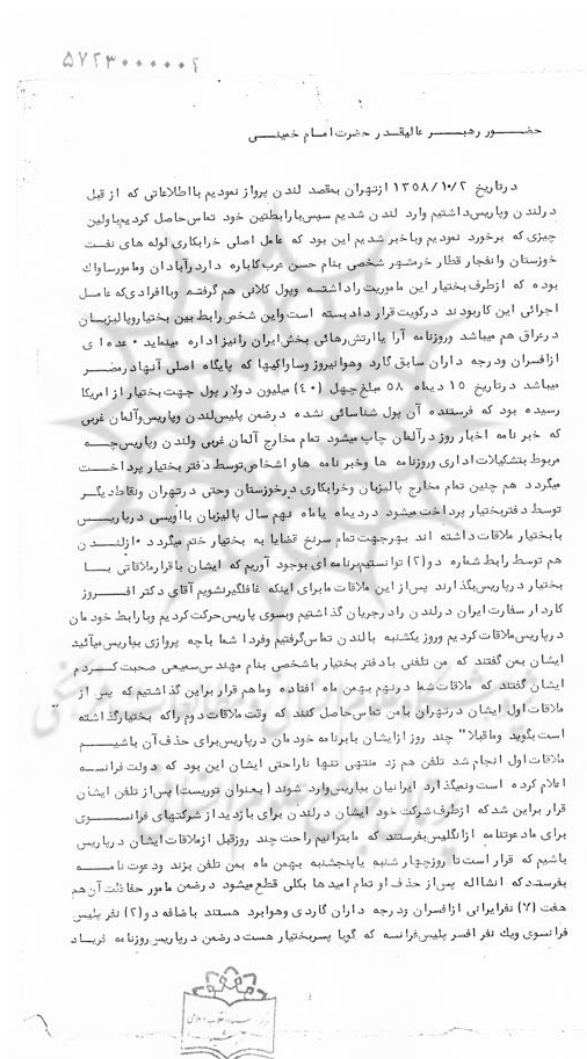 ۵۷۲۳۰۰۰۰۰۲
حضور رهبر عالیقدر حضرت امام خمینی
درتاریخ ۱۳۵۸/۱۰/۲ ازتهران بمقصد لندن پرواز نمودیم بااطلاعاتی که از قبل
درلندن وپاریس داشتیم وارد لندن شدیم سپس بارابطتین خود تماس حاصل کردیم باولین
چیزی که برخورد نمودیم وباخبر شدیم این بود که عامل اصلی خرابکاری لوله های نفت
خوزستان وانفجار قطار خرمشهر شخصی بنام حسن عرب کاباره دارد رآبادان ومامورساواک
بوده که ازطرف بختیار این ماموریت راداشته وپول کلانی هم گرفته وباافرادی که عامل
اجرائی این کاربودند درکویت قرار داد بسته است واین شخص رابط بین بختیاروپالیزبان
درعراق هم میباشد وروزنامه آرا یاارتش رهائی بخش ایران رانیز اداره مینماید ۰ عده ای
ازافسران ودرجه داران سابق گارد وهوانیروز وساواکیها که پایگاه اصلی آنهاد رمصر
میباشد درتاریخ ۱۵ دیماه ۵۸ مبلغ چهل (٤۰) میلیون دولار پول جهت بختیار از امریکا
رسیده بود که فرستنده آن پول شناسائی نشده درضمن پلیس لندن وپاریس وآلمان غربی
که خبرنامه اخبار روز درآلمان چاپ میشود تمام مخارج آلمان غربی ولندن وپاریس چه
مربوط بتشکیلات اداری وروزنامه ها وخبر نامه هاو اشخاص توسط دفتر بختیار پرداخت
میگردد هم چنین تمام مخارج پالیزبان وخرابکاری درخوزستان وحتی درتهران ونقاط دیگر
توسط دفتربختیار پرداخت میشود دردیماه یاماه نهم سال پالیزبان بااویسی درپاریس
بابختیار ملاقات داشته اند بهرجهت تمام سرنخ قضایا به بختیار ختم میگردد ۰ ازلندن
هم توسط رابط شماره دو(۲) توانستیم برنامه ای بوجود آوریم که ایشان باقرارملاقاتی با
بختیار درپاریس بگذارند پس از این ملاقات مابرای اینکه غافلگیرنشویم آقای دکتر افروز
کاردار سفارت ایران درلندن راد رجریان گذاشتیم وبسوی پاریس حرکت کردیم وبارابط خودمان
درپاریس ملاقات کردیم وروز یکشنبه بالندن تماس گرفتیم وفردا شما باچه پروازی بپاریس میآئید
ایشان بمن گفتند که من تلفنی بادفتر بختیار باشخصی بنام مهندس سمیعی صحبت کردم
ایشان گفتند که ملاقات شما درنهم بهمن ماه افتاده وماهم قرار براین گذاشتیم که پس از
ملاقات اول ایشان درتهران بامن تماس حاصل کنند که وقت ملاقات دوم راکه بختیارگذاشته
است بگوید وماقبلا" چند روز ازایشان بابرنامه خودمان درپاریس برای حذف آن باشیم
ملاقات اول انجام شد تلفن هم زد منتهی تنها ناراحتی ایشان این بود که دولت فرانسه
اعلام کرده است ونمیگذارد ایرانیان بپاریس وارد شوند (بعنوان توریست) پس از تلفن ایشان
قرار براین شدکه ازطرف شرکت خود ایشان درلندن برای بازدید از شرکتهای فرانسوی
برای مادعوتنامه ازانگلیس بفرستند که مابتوانیم راحت چند روزقبل ازملاقات ایشان درپاریس
باشیم که قرار است تا روزچهارشنبه یاپنجشنبه بهمن ماه بمن تلفن بزند ودعوت نامه
بفرستد که انشااله پس از حذف او تمام امیدها بکلی قطع میشود درضمن مامور حفاظت آن هم
هفت (۷) نفرایرانی ازافسران ودرجه داران گاردی وهوابرد هستند باضافه دو(۲) نفر پلیس
فرانسوی ویک نفر افسر پلیس فرانسه که گویا پسربختیار هست درضمن درپاریس روزنامه فریاد